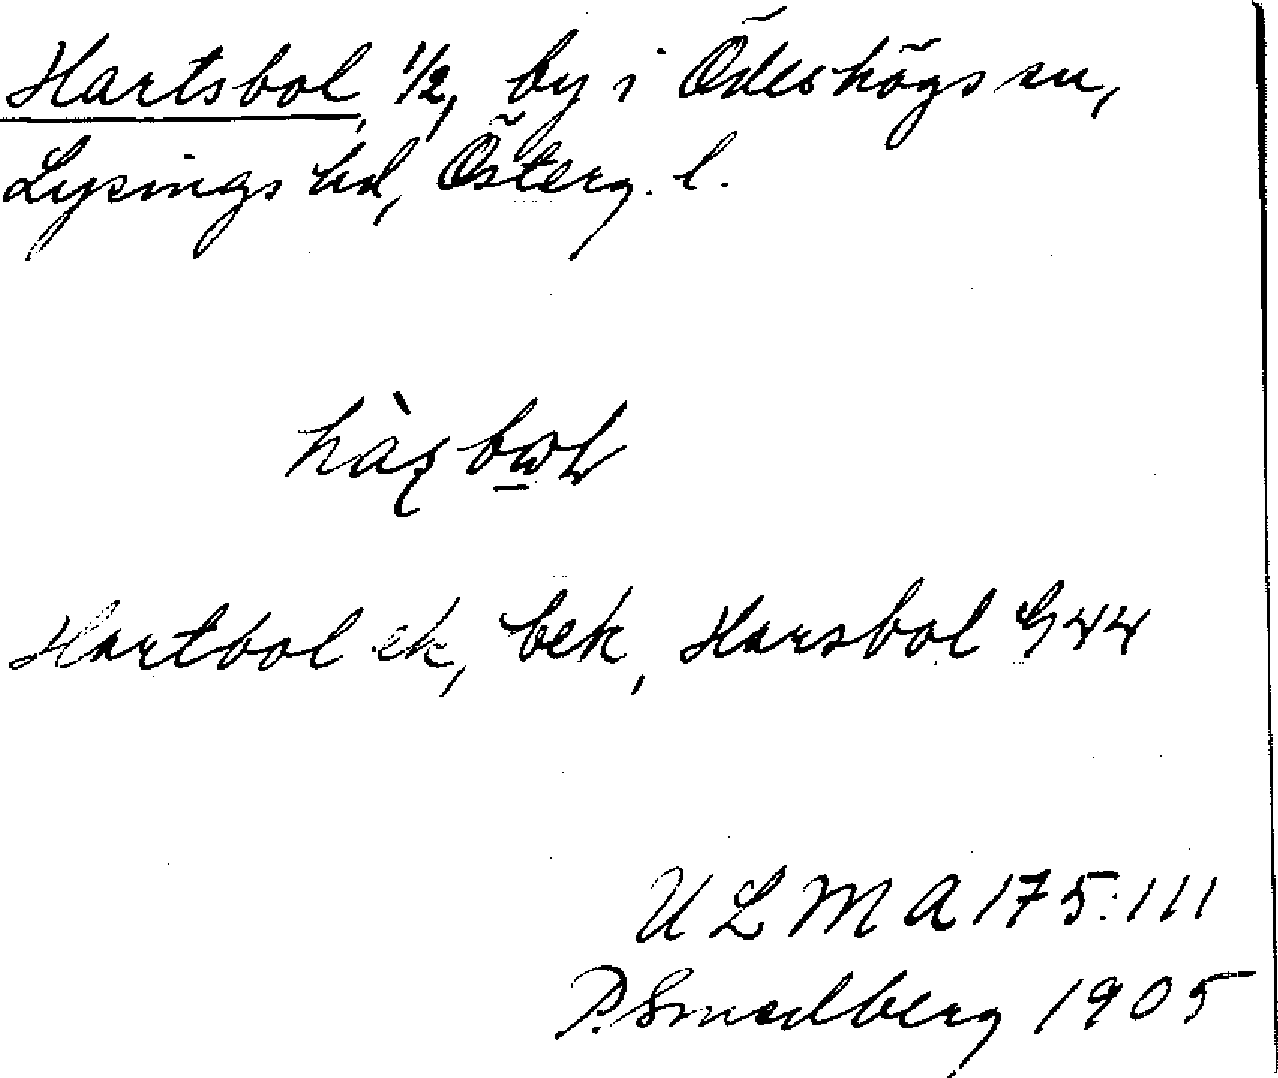 Hartsbol, 1/2, by i Ödeshögs sn,
Lysings hd, Österg. l.
Hartbol ek, bek, Harsbol
U L M A 175:111
P. Smedberg 1905